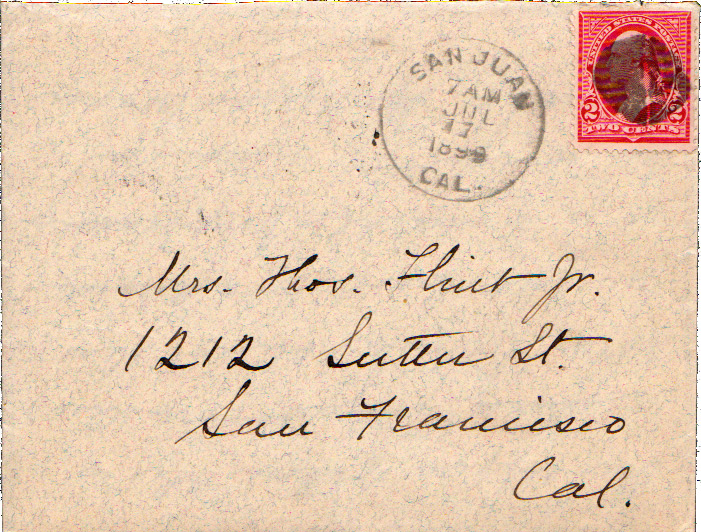 SAN JUAN
7AM
JUL
17
1899
CAL.
UNITED STATES POSTAGE
2 2
TWO CENTS
Mrs. Thos. Flint Jr.
1212 Sutter St.
San Francisco
Cal.